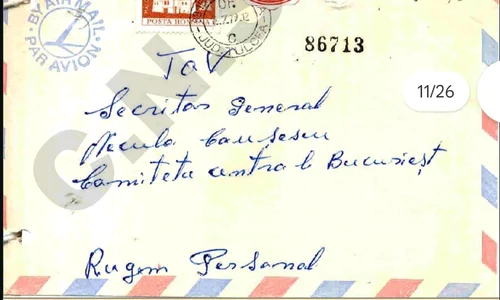 BY AIR MAIL
PAR AVION
POSTA ROMANA
JUD. TULCEA
86713
11/26
ToV
Secritar General
Neculo Causescu
Comitetu centra l Bucuriesţ
Rugem Personal